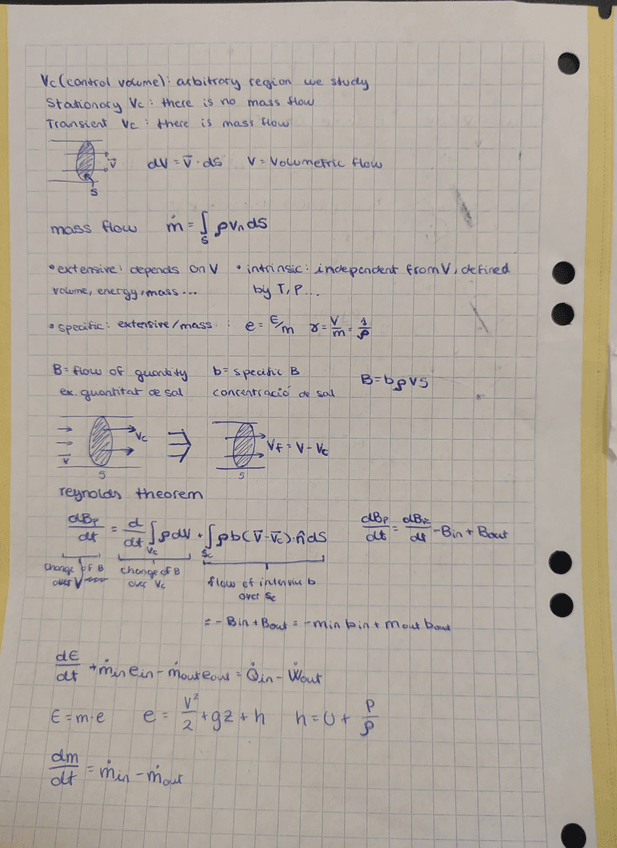 Vc (control volume): arbitrary region we study
Stationary Vc: there is no mass flow
Transient Vc: there is mass flow
v̅ dV = v̅ · ds V = Volumetric flow
S
mass flow ṁ = ∫s ρ vn dS
• extensive: depends on V • intrinsic: independent from V, defined
volume, energy, mass... by T, P...
• specific: extensive/mass : e = E/m γ = V/m = 1/ρ
B = flow of quantity b = specific B B = bρVS
ex. quantitat de sal concentració de sal
v̅ Vc ⇒ Vf = V - Vc
S S
reynolds theorem
dBp/dt = d/dt ∫Vc ρdV + ∫Sc ρb(v̅ - v̅c)·n̂ dS dBp/dt = dBvc/dt - Bin + Bout
change of B over V change of B over Vc flow of b over Sc
= - Bin + Bout = - min bin + mout bout
dE/dt + ṁin ein - ṁout eout = Q̇in - Ẇout
E = m·e e = V²/2 + gz + h h = U + P/ρ
dm/dt = ṁin - ṁout